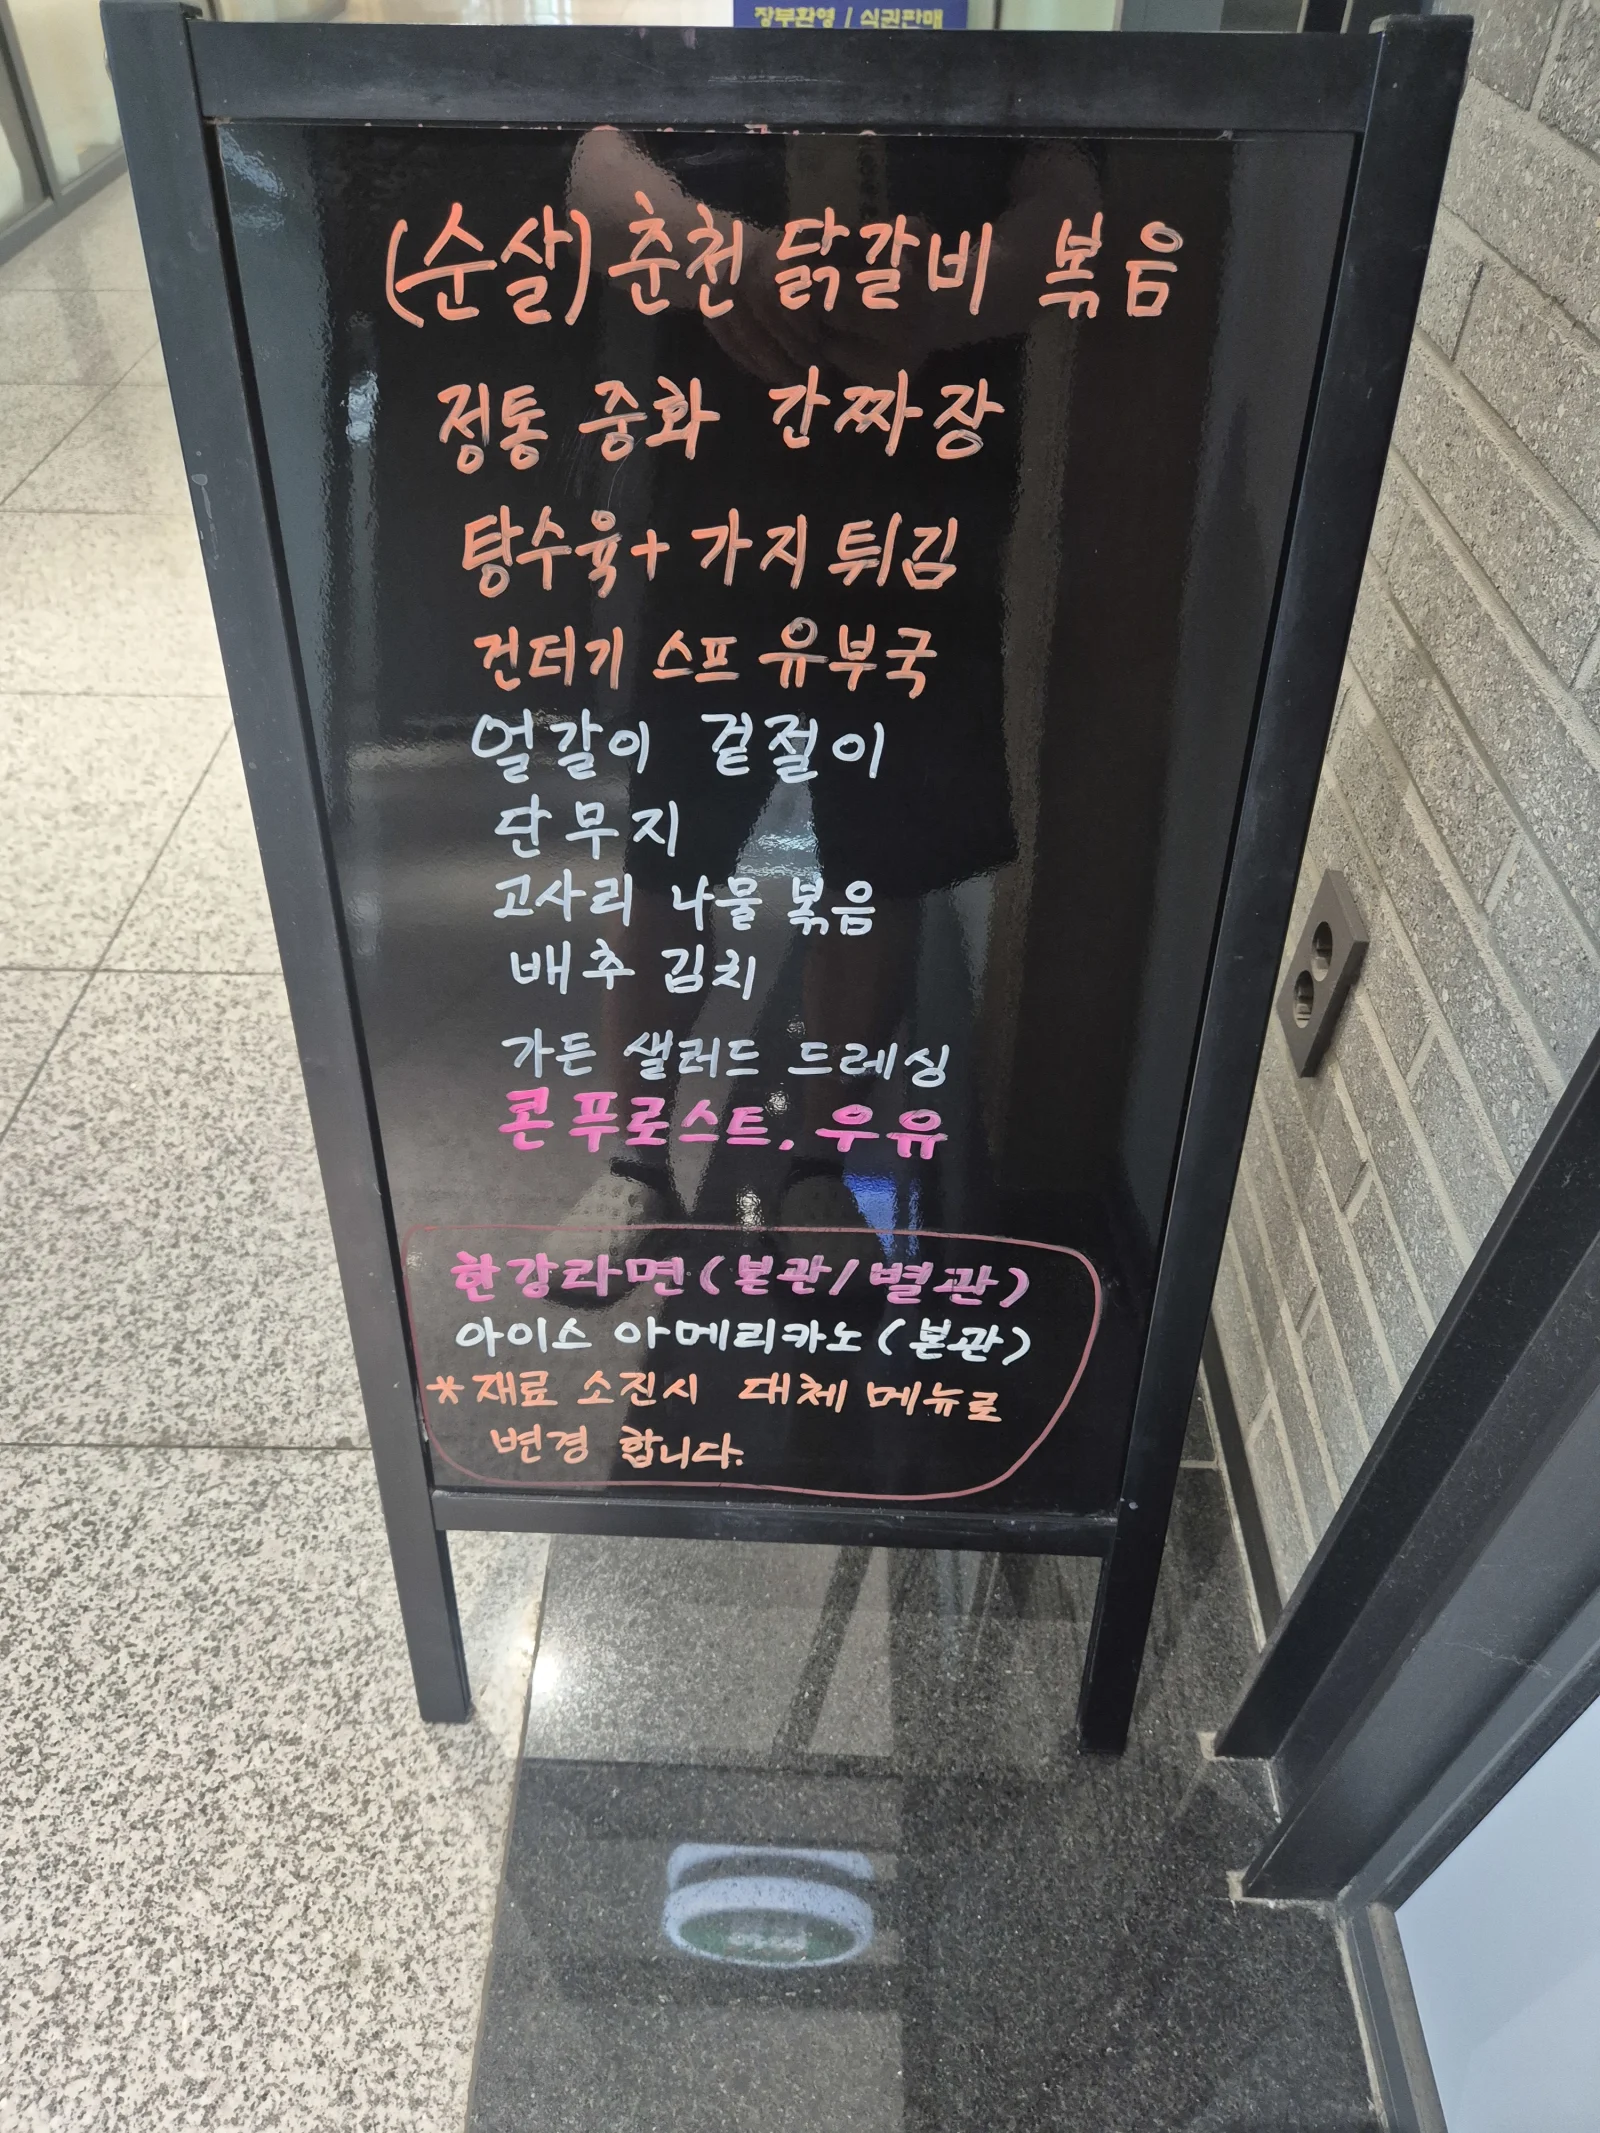 장부환영 / 식권판매
(순살) 춘천 닭갈비 볶음
정통 중화 간짜장
탕수육+ 가지 튀김
건더기 스프 유부국
얼갈이 겉절이
단무지
고사리 나물 볶음
배추 김치
가든 샐러드 드레싱
콘푸로스트, 우유
한강라면 (본관/별관)
아이스 아메리카노 (본관)
*재료 소진시 대체 메뉴로
변경 합니다.